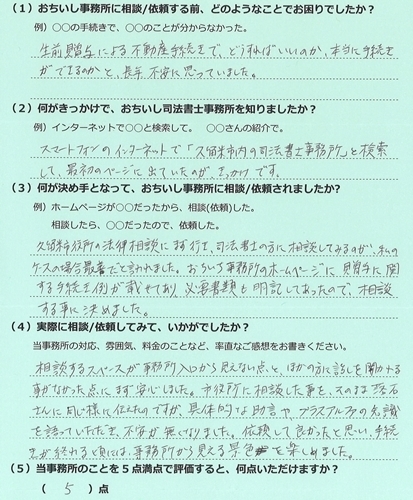 (1)おちいし事務所に相談/依頼する前、どのようなことでお困りでしたか?
例)○○の手続きで、○○のことが分からなかった。
生前贈与による不動産手続きで、どうすればいいのか、本当に手続き
ができるのかと、長年不安に思っていました。
(2)何がきっかけで、おちいし司法書士事務所を知りましたか?
例)インターネットで○○と検索して。 ○○さんの紹介で。
スマートフォンのインターネットで「久留米市内の司法書士事務所」と検索
して、最初のページに出ていたのが、きっかけです。
(3)何が決め手となって、おちいし事務所に相談/依頼されましたか?
例)ホームページが○○だったから、相談(依頼)した。
相談したら、○○だったので、依頼した。
久留米市役所の法律相談にまず行き、司法書士の方に相談してみるのが、私の
ケースの場合最善だと言われました。おちいし事務所のホームページに、贈与に関
する手続き例が載せてあり、必要書類も明記してあったので、相談
する事に決めました。
(4)実際に相談/依頼してみて、いかがでしたか?
当事務所の対応、雰囲気、料金のことなど、率直なご感想をお書きください。
相談するスペースが事務所入口から見えない点と、ほかの方に話しを聞かれる
事がなかった点にまず安心しました。市役所に相談した事を、そのまま落石
さんに同じ様に伝えたのですが、具体的な助言や、プラスアルファの知識
を語っていただき、不安が無くなりました。依頼して良かったと思い、手続き
が終わる頃には、事務所から見える景色を楽しめました。
(5)当事務所のことを5点満点で評価すると、何点いただけますか?
( 5 )点